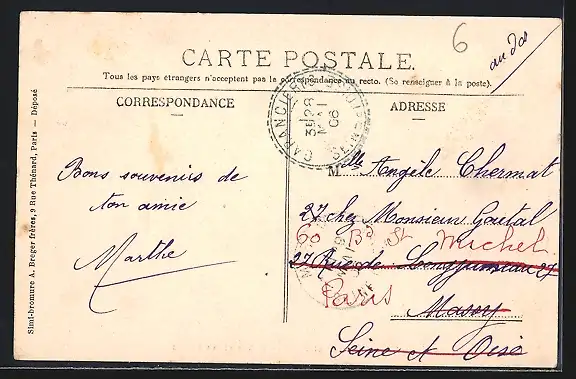 6
au dos
CARTE POSTALE.
Tous les pays étrangers n'acceptent pas la correspondance au recto. (Se renseigner à la poste).
CORRESPONDANCE
ADRESSE
28
MAI
06
Mlle Angèle Chermat
Bons souvenirs de
ton amie
Marthe
27 chez Monsieur Goutal
60 Bd St Michel
27 Rue de Longjumeau 27
Paris
Massy
Seine et Oise
Simili-bromure A. Breger frères, 9 Rue Thénard, Paris — Déposé